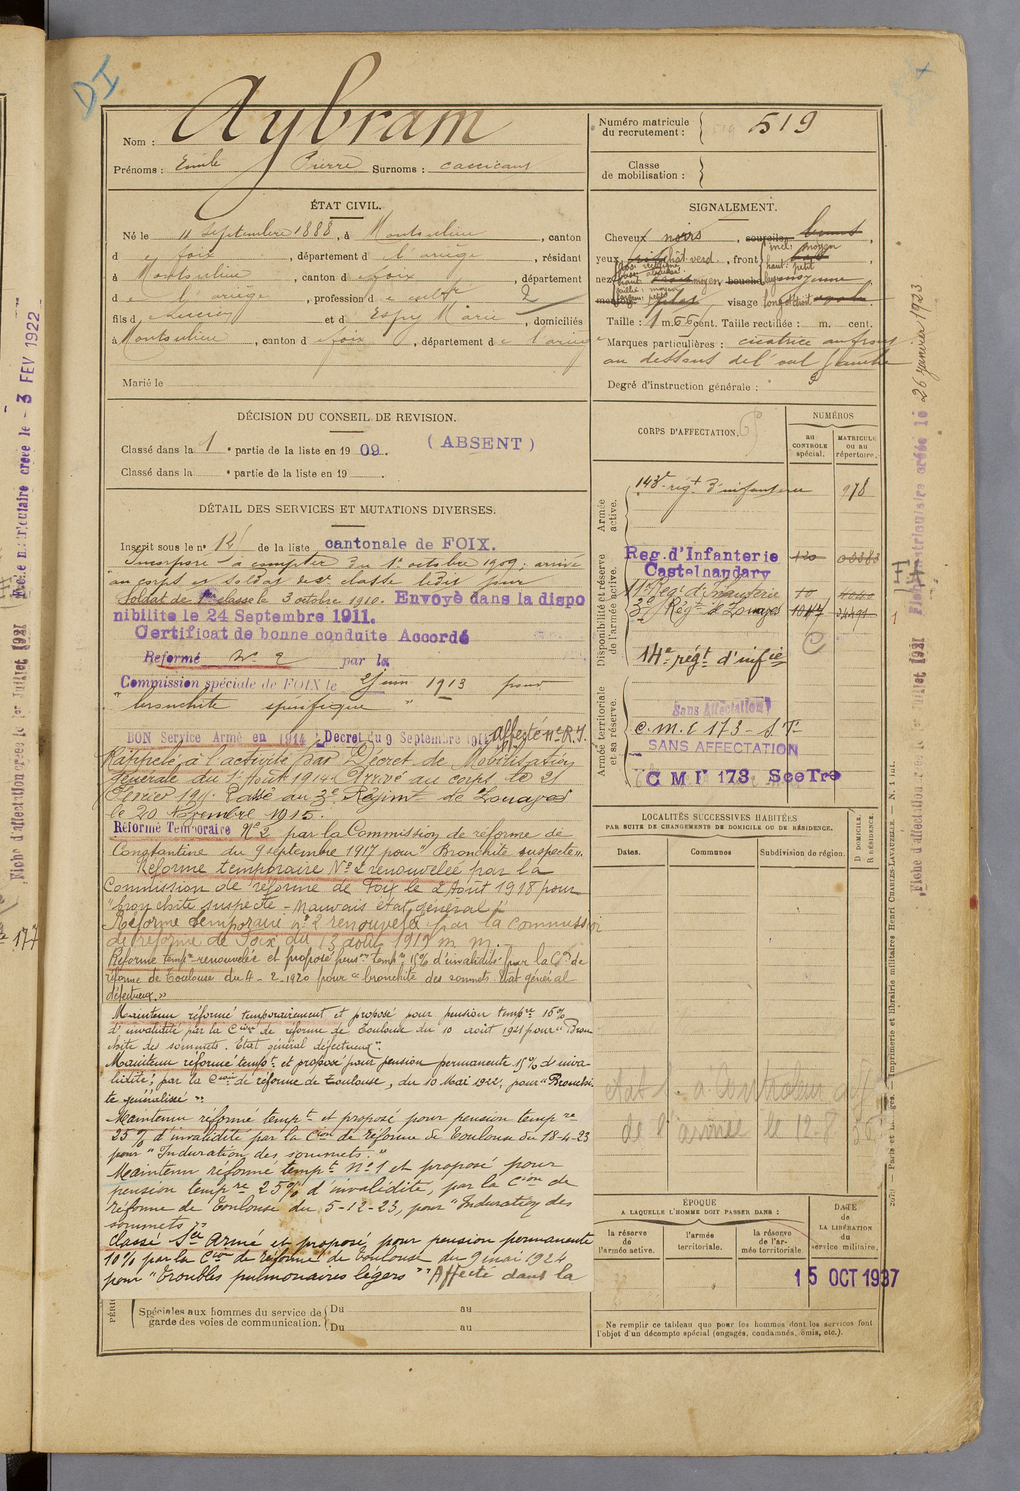 DI
Nom : Aybram
Prénoms : Emile Pierre Surnoms :
Numéro matricule du recrutement : 519
Classe de mobilisation :
ÉTAT CIVIL.
Né le 11 Septembre 1888, à Montoulieu, canton
d e foix, département d e l'ariège, résidant
à Montoulieu, canton d e foix, département
d e l'ariège, profession d e cultr 2
fils d e et d e Espy Marie, domiciliés
à Montoulieu, canton d e foix, département d e l'ariège
Marié le
SIGNALEMENT.
Cheveux noirs, sourcils bruns,
yeux chât. verd., front incl: moyen haut: petit
nez moyen bouche moyenne
menton visage long
Taille : 1 m. 66 cent. Taille rectifiée : m. cent.
Marques particulières : cicatrice au front
au dessus de l'œil gauche
Degré d'instruction générale : 3
DÉCISION DU CONSEIL DE REVISION.
Classé dans la 1e partie de la liste en 1909. (ABSENT)
Classé dans la e partie de la liste en 19 .
DÉTAIL DES SERVICES ET MUTATIONS DIVERSES.
Inscrit sous le n° 14 de la liste cantonale de FOIX.
Incorporé à compter du 1er octobre 1909; arrivé
au corps et soldat de 2e classe ledit jour
Soldat de 1re classe le 3 octobre 1910. Envoyé dans la dispo
nibilite le 24 Septembre 1911.
Certificat de bonne conduite Accordé
Réformé N° 2 par la
Commission spéciale de FOIX le 2 juin 1913 pour
"bronchite spécifique"
BON Service Armé en 1914 : Decret du 9 Septembre 1914 affecté 11e R.I.
Rappelé à l'activité par Décret de Mobilisation
générale du 1er Août 1914. Arrivé au corps le 21
Février 1915. Passé au 3e Régimt de Zouaves
le 20 Novembre 1915.
Réformé Temporaire N° 2 par la Commission de réforme de
Constantine du 9 septembre 1917 pour "Bronchite suspecte".
Réforme temporaire N° 2 renouvelée par la
Commission de réforme de Foix le 2 Août 1918 pour
"bronchite suspecte - Mauvais état général"
Réforme temporaire n° 2 renouvelée par la commission
de réforme de Foix du 13 août 1919 m. m.
Réforme tempre renouvelée et proposé pension tempre 15% d'invalidité par la Con de
réforme de Toulouse du 4-2-1920 pour "bronchite des sommets état général
défectueux."
Maintenu réformé temporairement et proposé pour pension tempre 15%
d'invalidité par la Cion de réforme de Toulouse du 10 août 1921 pour "Bron
chite des sommets. Etat général défectueux".
Maintenu réformé tempt et proposé pour pension permanente 15% d'inva-
lidité; par la Cion de réforme de Toulouse, du 10 Mai 1922, pour "Bronchi-
te généralisée".
Maintenu réformé tempt et proposé pour pension tempre
25% d'invalidité par la Cion de réforme de Toulouse du 18-4-23
pour "Induration des sommets."
Maintenu réformé tempt N° 1 et proposé pour
pension tempre 25% d'invalidité, par la Cion de
réforme de Toulouse du 5-12-23, pour "Induration des
sommets".
Classé Sce Armé et proposé pour pension permanente
10% par la Cion de Réforme de Toulouse du 9 mai 1924
pour "Troubles pulmonaires légers". Affecté dans la
PÉRI
Spéciales aux hommes du service de garde des voies de communication. Du au
Du au
CORPS D'AFFECTATION.
NUMÉROS
au contrôle spécial.
matricule ou au répertoire.
Armée active.
143e régt d'infanterie 978
Disponibilité et réserve de l'armée active.
Reg. d'Infanterie
Castelnaudary
11e Regt d'Infanterie
3e Régt de Zouaves
14e régt d'infie
Armée territoriale et sa réserve.
Sans Affectation
C.M.I 173 - S.T.
SANS AFFECTATION
C M I 173 SceTre
LOCALITÉS SUCCESSIVES HABITÉES
PAR SUITE DE CHANGEMENTS DE DOMICILE OU DE RÉSIDENCE.
Dates. Communes Subdivision de région.
D. DOMICILE.
R. RÉSIDENCE.
de l'armée le 12-8-36
ÉPOQUE
A LAQUELLE L'HOMME DOIT PASSER DANS :
la réserve de l'armée active.
l'armée territoriale.
la réserve de l'armée territoriale
DATE de LA LIBÉRATION du service militaire.
15 OCT 1937
Ne remplir ce tableau que pour les hommes dont les services font
l'objet d'un décompte spécial (engagés, condamnés, omis, etc.).
Fiche matriculaire créée le - 3 FEV 1922
Fiche d'affectation créée le 1er Juillet 1921
Fiche matriculaire créée le 26 janvier 1923
Fiche d'affectation créée le 1er Juillet 1921
Paris et Limoges. — Imprimerie et librairie militaires Henri CHARLES-LAVAUZELLE.